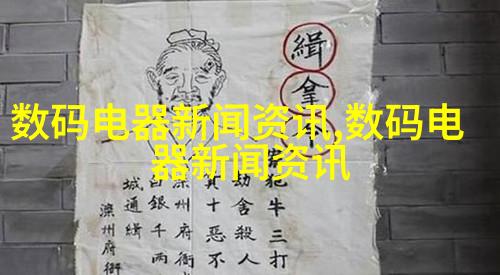 数码电器新闻资讯,数码电
器新闻资讯
緝拿
犯牛三打
劫舍殺人
其十惡不
滦州府衙
白銀千兩
城通緝
滦州府衙